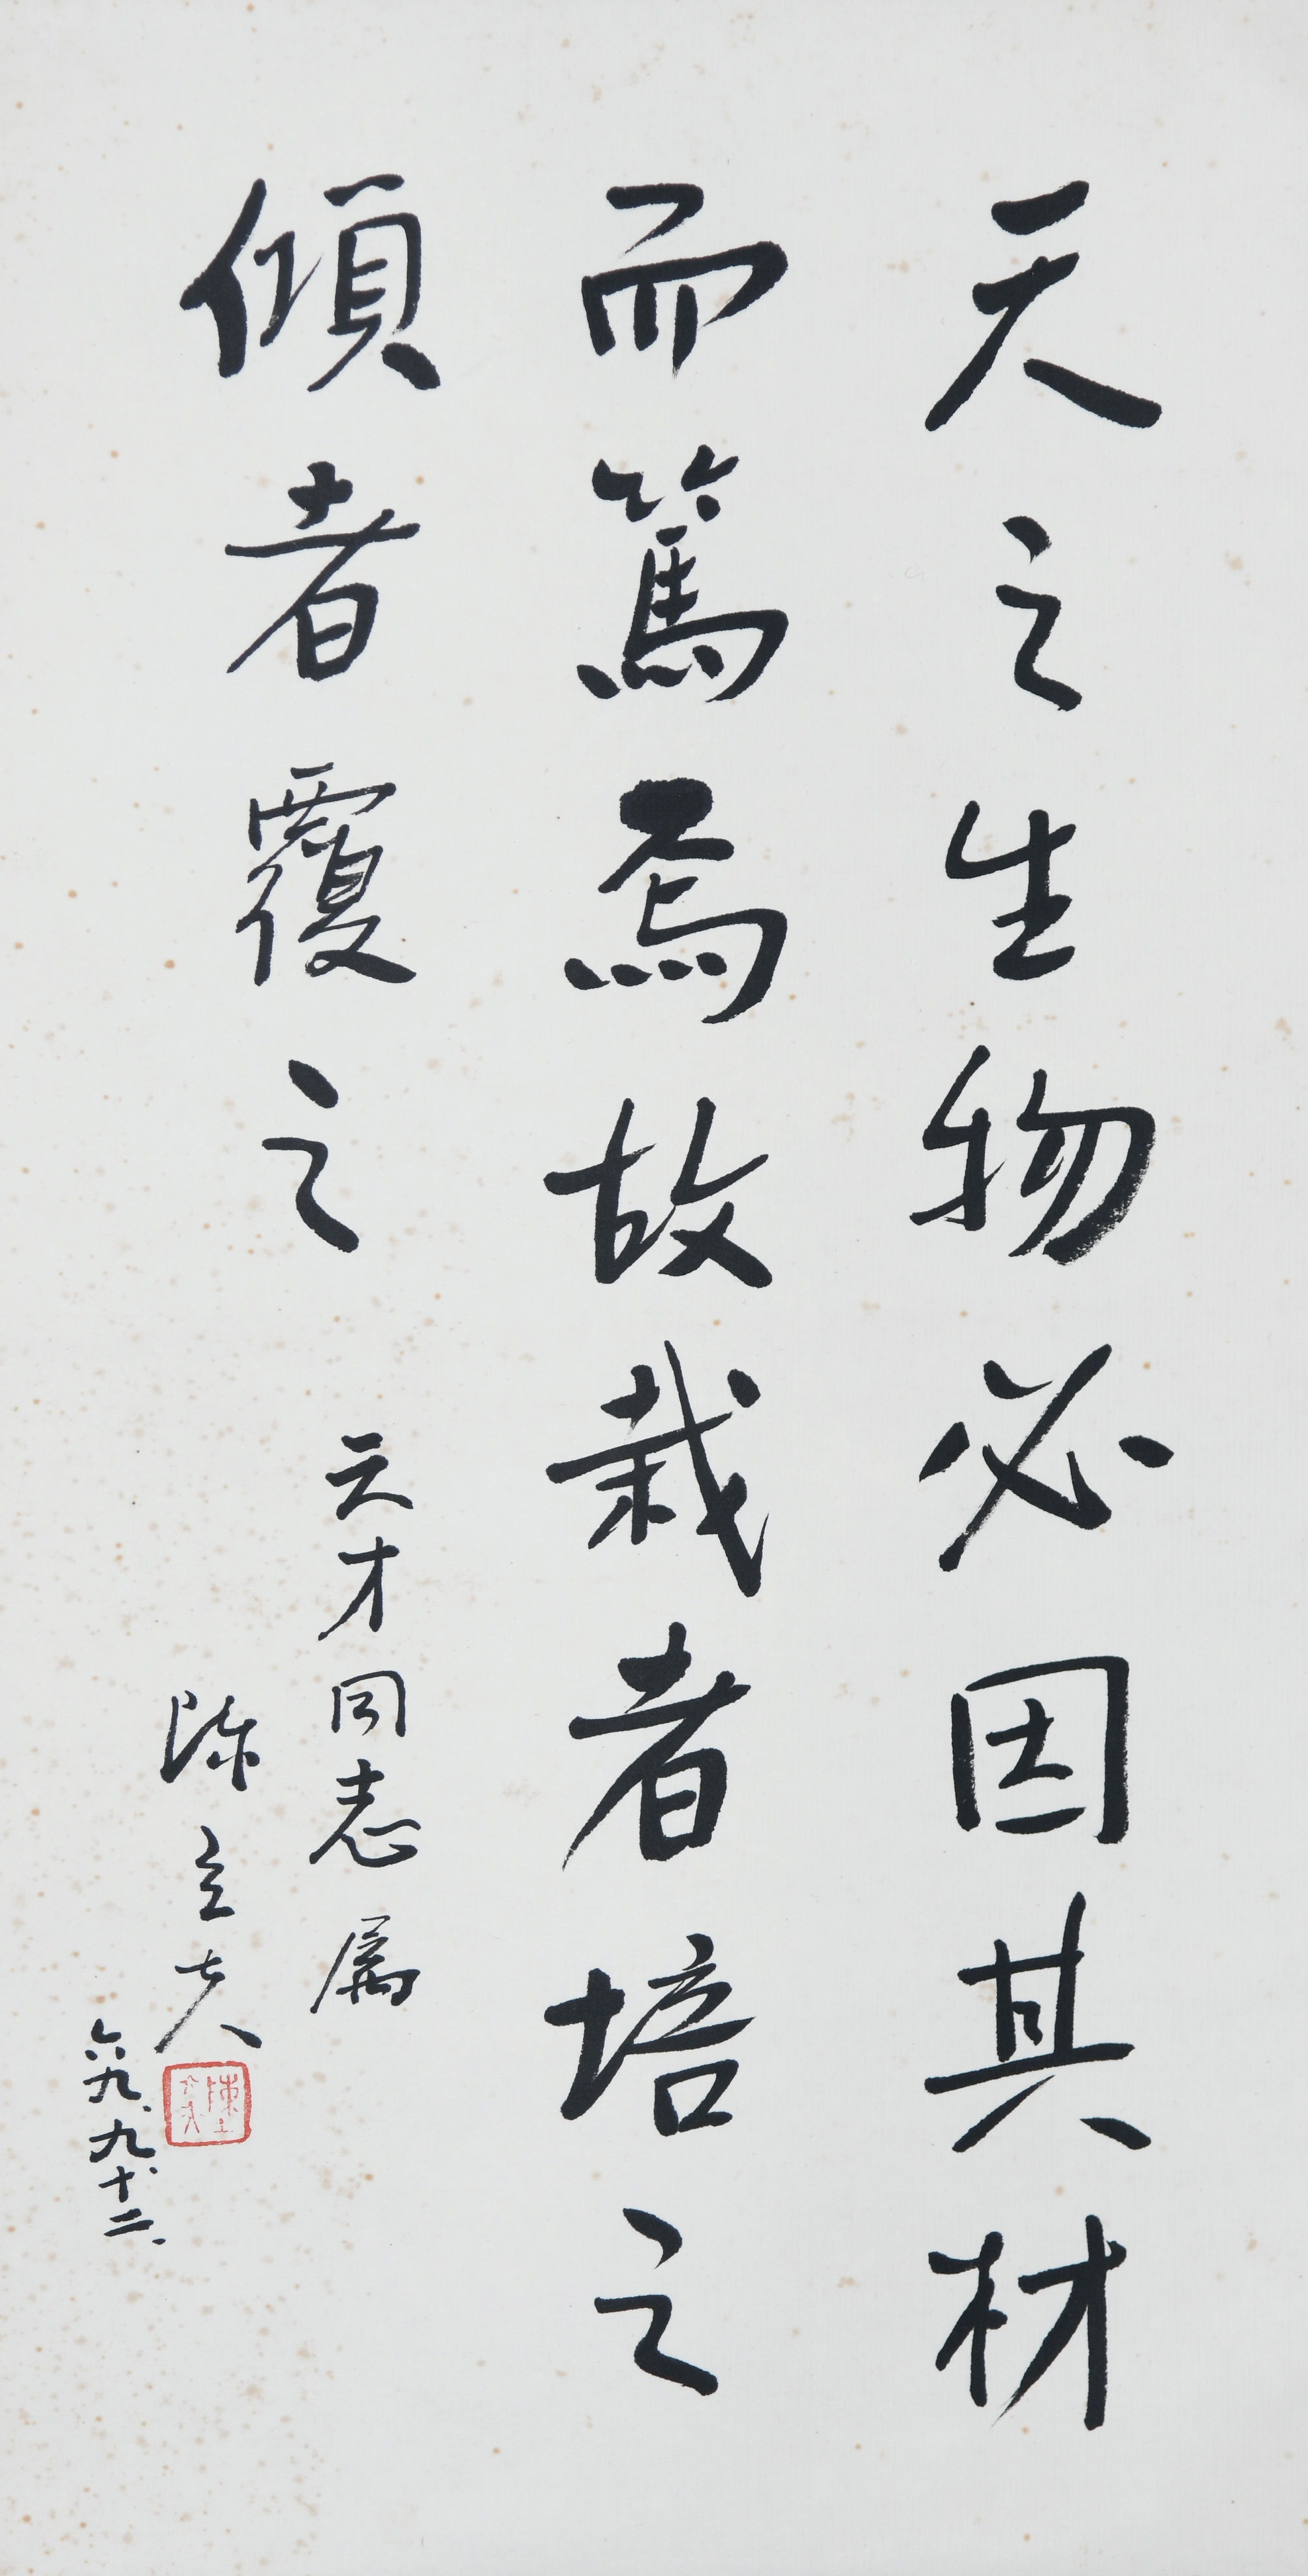 天之生物必因其材
而篤焉故栽者培之
傾者覆之
天才同志属
陳立夫
六九、九、十二、
陳立夫